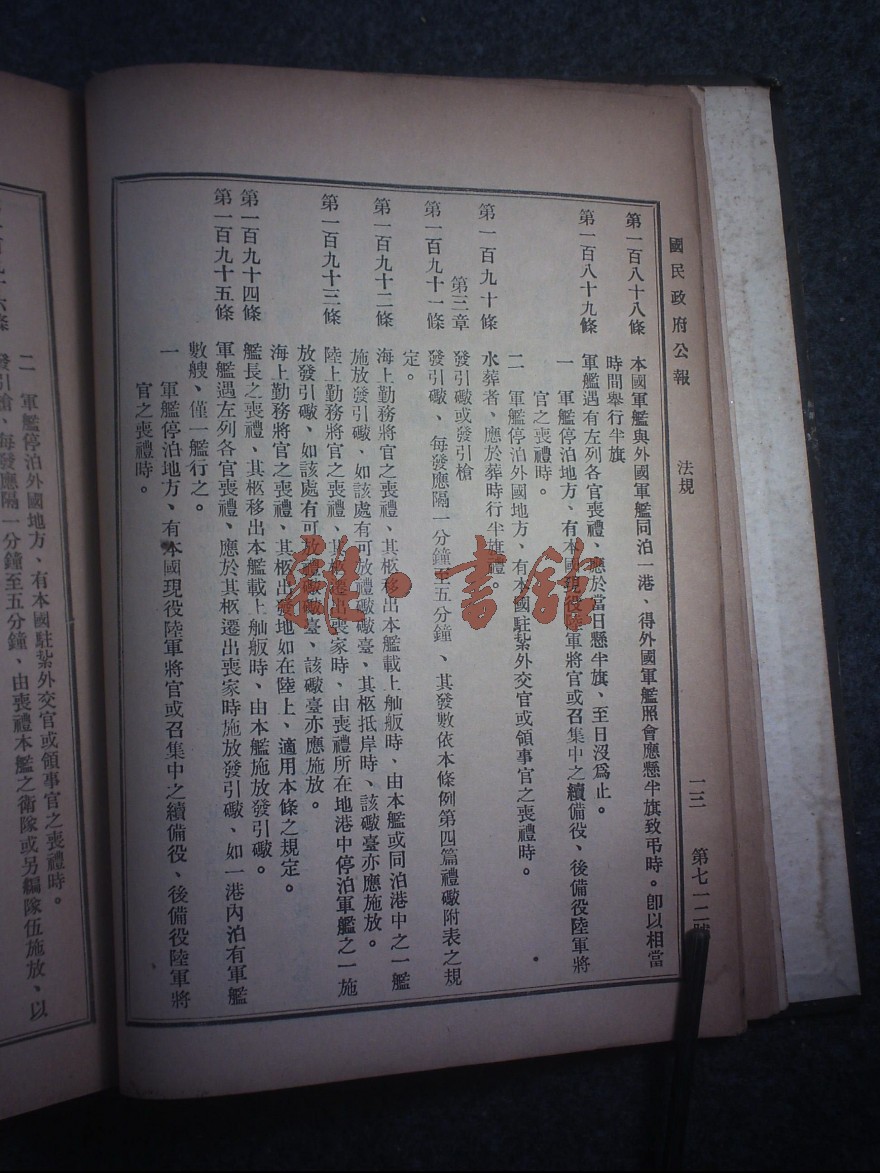 國民政府公報
法規
一三
第七一二號
第一百八十八條
本國軍艦與外國軍艦同泊一港、得外國軍艦照會應懸半旗致弔時。卽以相當
時間舉行半旗
第一百八十九條
軍艦遇有左列各官喪禮、應於當日懸半旗、至日沒爲止。
一 軍艦停泊地方、有本國現役陸軍將官或召集中之續備役、後備役陸軍將
官之喪禮時。
二 軍艦停泊外國地方、有本國駐紮外交官或領事官之喪禮時。
第一百九十條
水葬者、應於葬時行半旗禮。
第三章
發引礮或發引槍
第一百九十一條
發引礮、每發應隔一分鐘至五分鐘、其發數依本條例第四篇禮礮附表之規
定。
第一百九十二條
海上勤務將官之喪禮、其柩移出本艦載上舢舨時、由本艦或同泊港中之一艦
施放發引礮、如該處有可放禮礮礮臺、其柩抵岸時、該礮臺亦應施放。
第一百九十三條
陸上勤務將官之喪禮、其柩遷出喪家時、由喪禮所在地港中停泊軍艦之一施
放發引礮、如該處有可放禮礮礮臺、該礮臺亦應施放。
海上勤務將官之喪禮、其柩出發地如在陸上、適用本條之規定。
第一百九十四條
艦長之喪禮、其柩移出本艦載上舢舨時、由本艦施放發引礮。
第一百九十五條
軍艦遇左列各官喪禮、應於其柩遷出喪家時施放發引礮、如一港內泊有軍艦
數艘、僅一艦行之。
一 軍艦停泊地方、有本國現役陸軍將官或召集中之續備役、後備役陸軍將
官之喪禮時。
二 軍艦停泊外國地方、有本國駐紮外交官或領事官之喪禮時。
百九十六條
發引槍、每發應隔一分鐘至五分鐘、由喪禮本艦之衛隊或另編隊伍施放、以
雜·書館